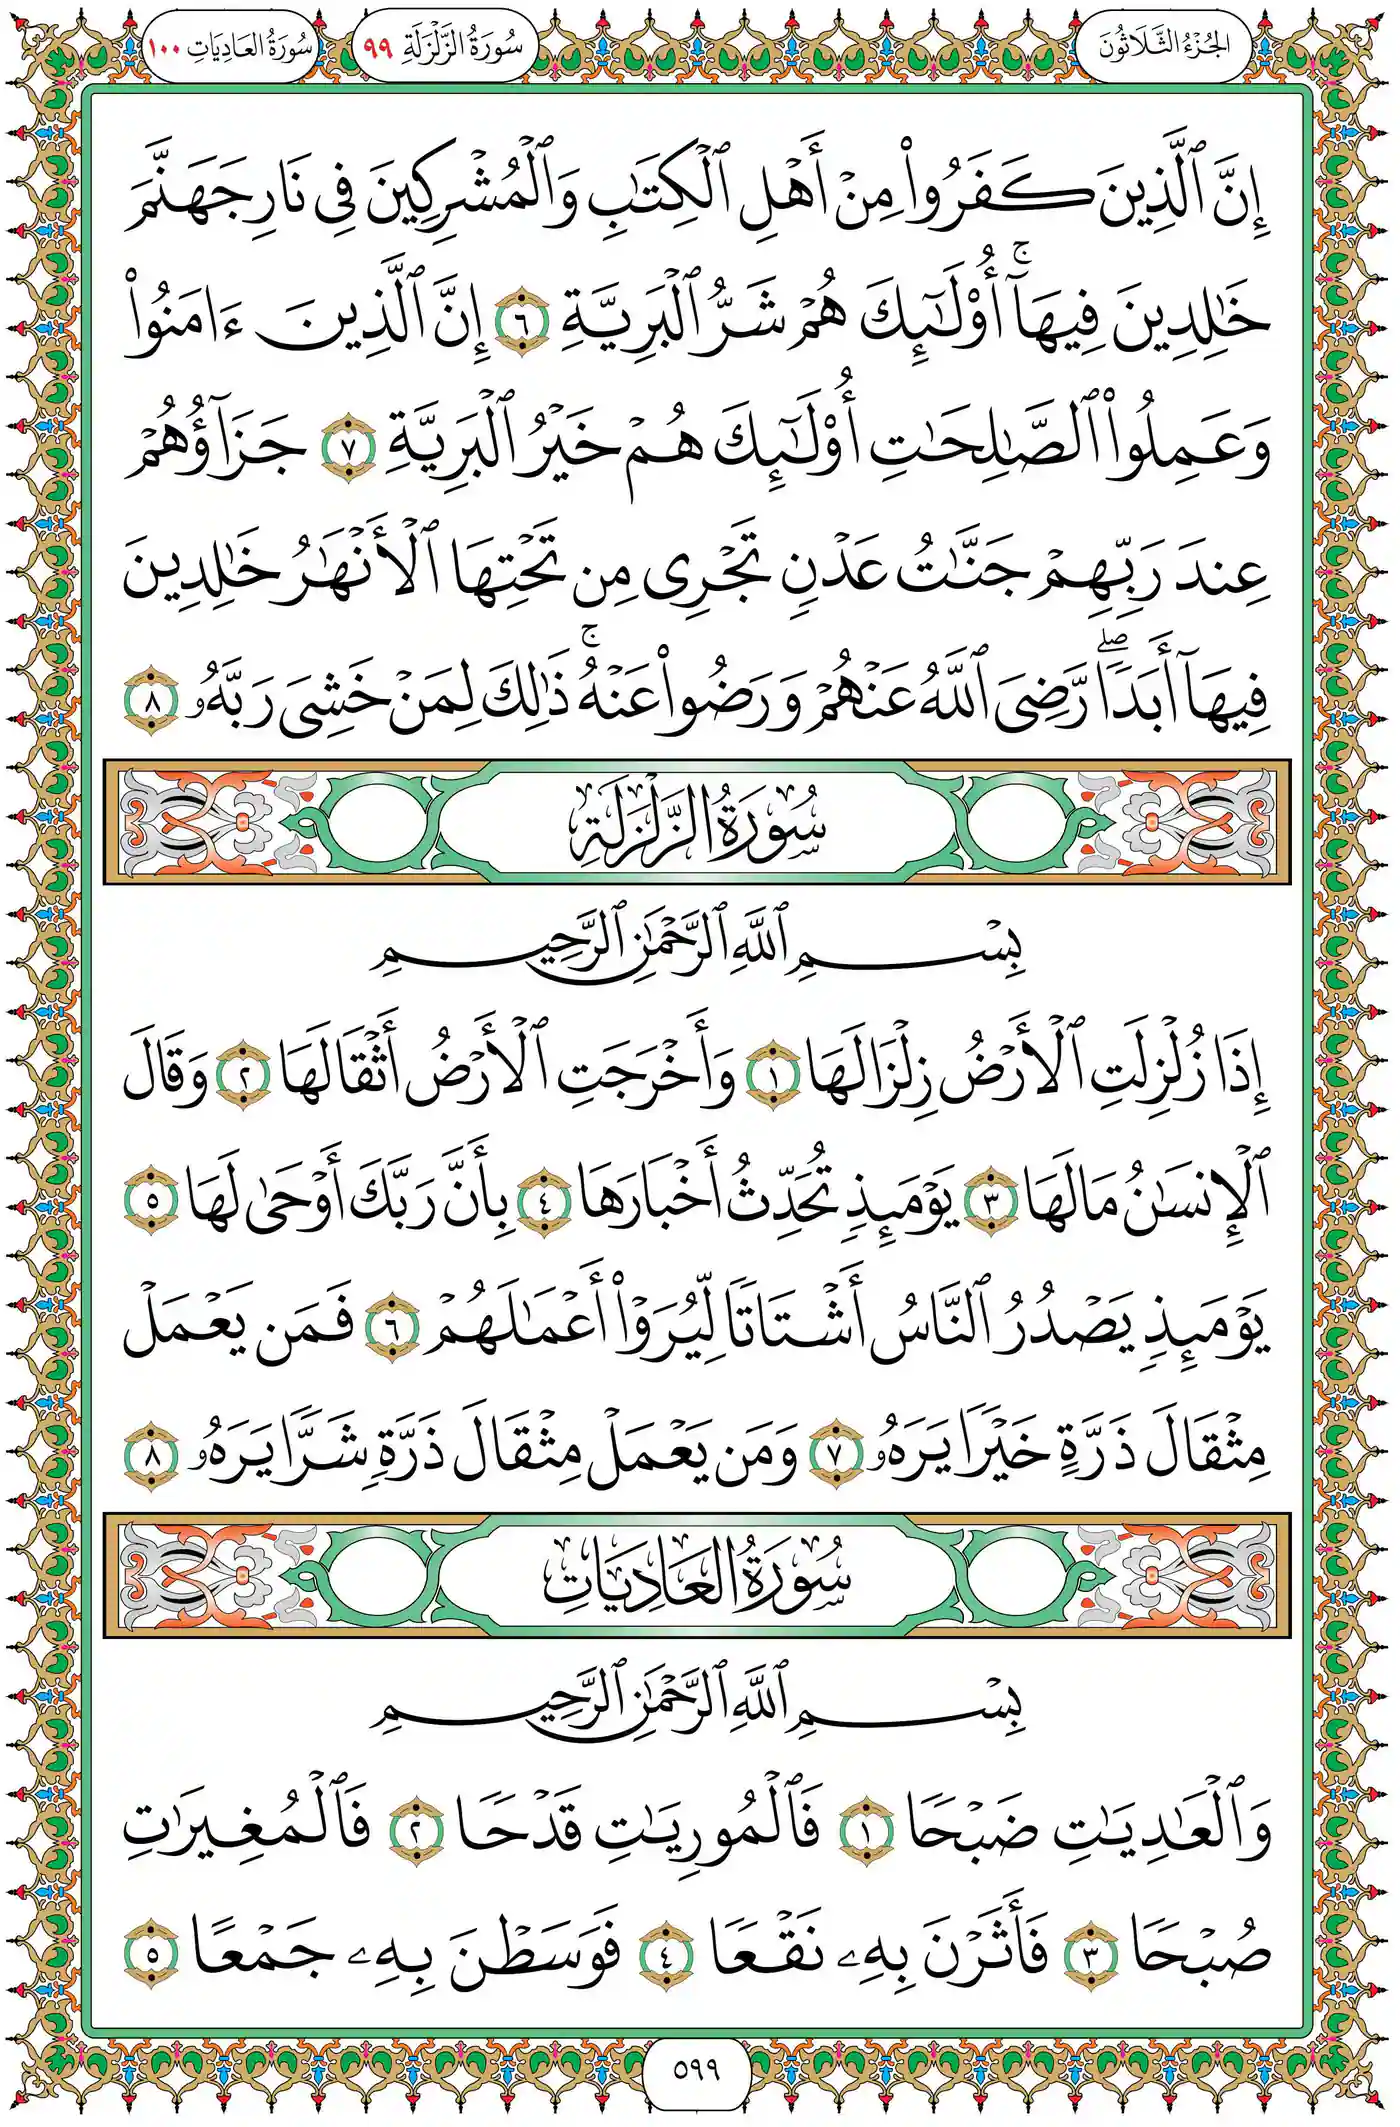 الجُزْءُ الثَّلَاثُونَ سُورَةُ الزَّلْزَلَةِ ٩٩ سُورَةُ العَادِيَاتِ ١٠٠
إِنَّ ٱلَّذِينَ كَفَرُوا۟ مِنْ أَهْلِ ٱلْكِتَٰبِ وَٱلْمُشْرِكِينَ فِى نَارِ جَهَنَّمَ
خَٰلِدِينَ فِيهَآ ۚ أُو۟لَٰٓئِكَ هُمْ شَرُّ ٱلْبَرِيَّةِ ٦ إِنَّ ٱلَّذِينَ ءَامَنُوا۟
وَعَمِلُوا۟ ٱلصَّٰلِحَٰتِ أُو۟لَٰٓئِكَ هُمْ خَيْرُ ٱلْبَرِيَّةِ ٧ جَزَآؤُهُمْ
عِندَ رَبِّهِمْ جَنَّٰتُ عَدْنٍ تَجْرِى مِن تَحْتِهَا ٱلْأَنْهَٰرُ خَٰلِدِينَ
فِيهَآ أَبَدًا ۖ رَّضِىَ ٱللَّهُ عَنْهُمْ وَرَضُوا۟ عَنْهُ ۚ ذَٰلِكَ لِمَنْ خَشِىَ رَبَّهُۥ ٨
سُورَةُ الزَّلْزَلَةِ
بِسْمِ ٱللَّهِ ٱلرَّحْمَٰنِ ٱلرَّحِيمِ
إِذَا زُلْزِلَتِ ٱلْأَرْضُ زِلْزَالَهَا ١ وَأَخْرَجَتِ ٱلْأَرْضُ أَثْقَالَهَا ٢ وَقَالَ
ٱلْإِنسَٰنُ مَا لَهَا ٣ يَوْمَئِذٍ تُحَدِّثُ أَخْبَارَهَا ٤ بِأَنَّ رَبَّكَ أَوْحَىٰ لَهَا ٥
يَوْمَئِذٍ يَصْدُرُ ٱلنَّاسُ أَشْتَاتًا لِّيُرَوْا۟ أَعْمَٰلَهُمْ ٦ فَمَن يَعْمَلْ
مِثْقَالَ ذَرَّةٍ خَيْرًا يَرَهُۥ ٧ وَمَن يَعْمَلْ مِثْقَالَ ذَرَّةٍ شَرًّا يَرَهُۥ ٨
سُورَةُ العَادِيَاتِ
بِسْمِ ٱللَّهِ ٱلرَّحْمَٰنِ ٱلرَّحِيمِ
وَٱلْعَٰدِيَٰتِ ضَبْحًا ١ فَٱلْمُورِيَٰتِ قَدْحًا ٢ فَٱلْمُغِيرَٰتِ
صُبْحًا ٣ فَأَثَرْنَ بِهِۦ نَقْعًا ٤ فَوَسَطْنَ بِهِۦ جَمْعًا ٥
٥٩٩